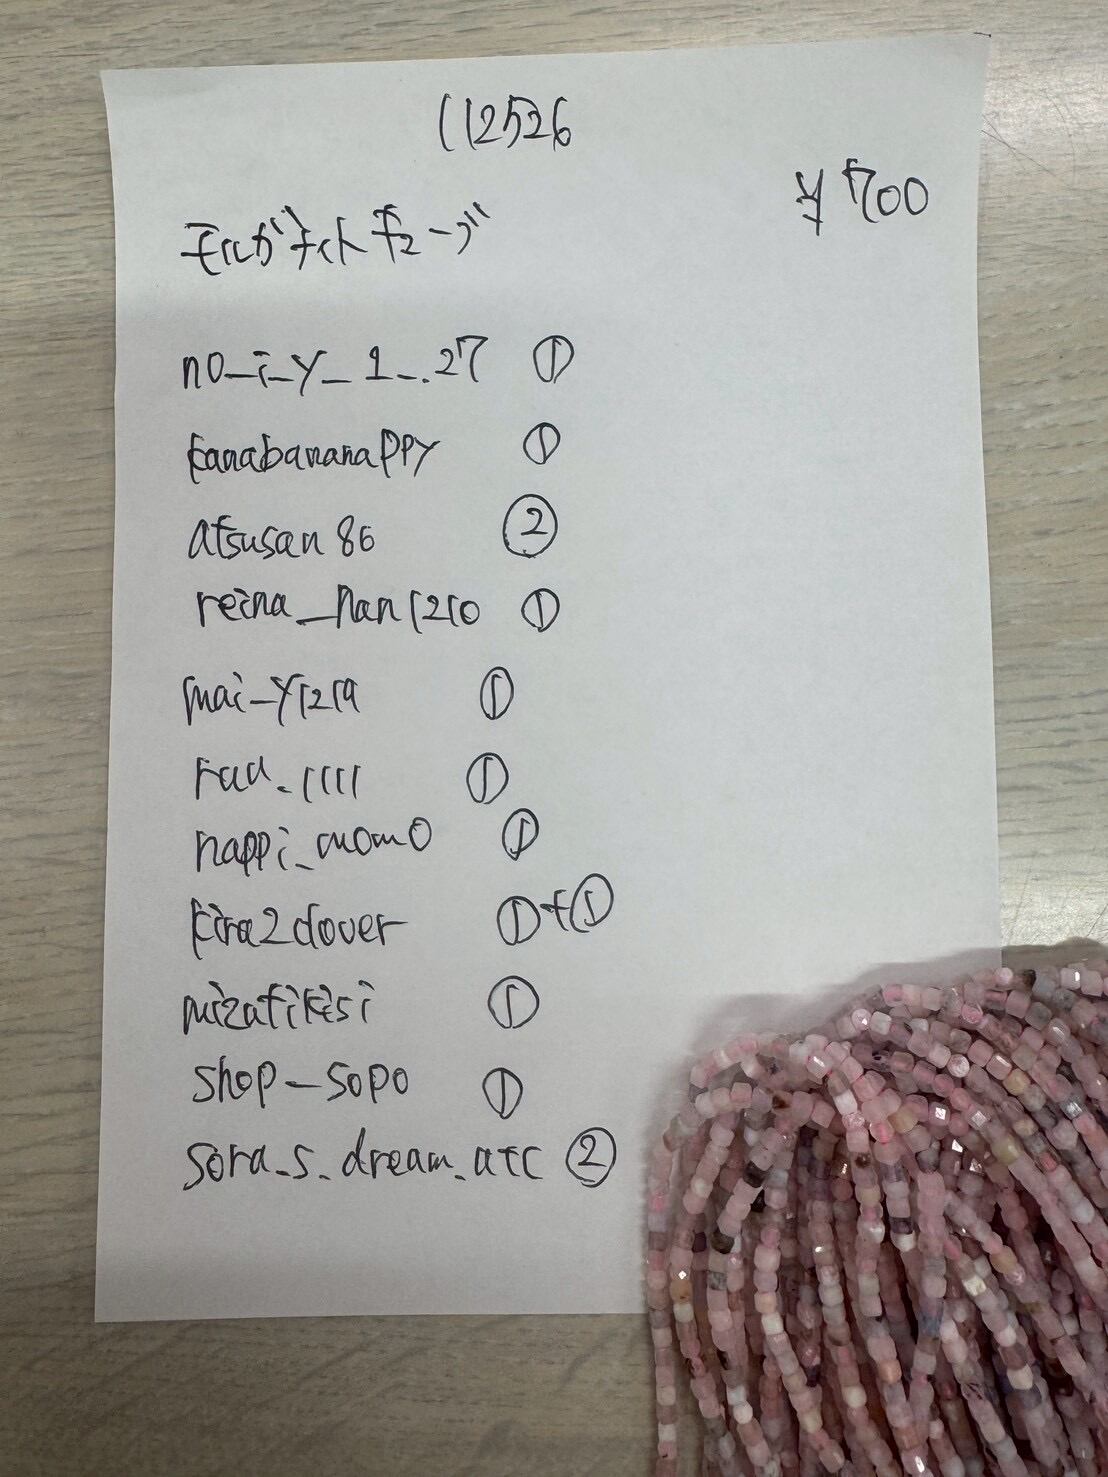 112526
¥700
モルガナイトキューブ
no_i_y_1_.27 ①
kanabananappy ①
atsusan86 ②
reina_nan1210 ①
mai_y1219 ①
rau.1111 ①
nappi_momo ①
kira2clover ①+①
mizatikisi ①
shop_sopo ①
sora_s.dream.atc ②